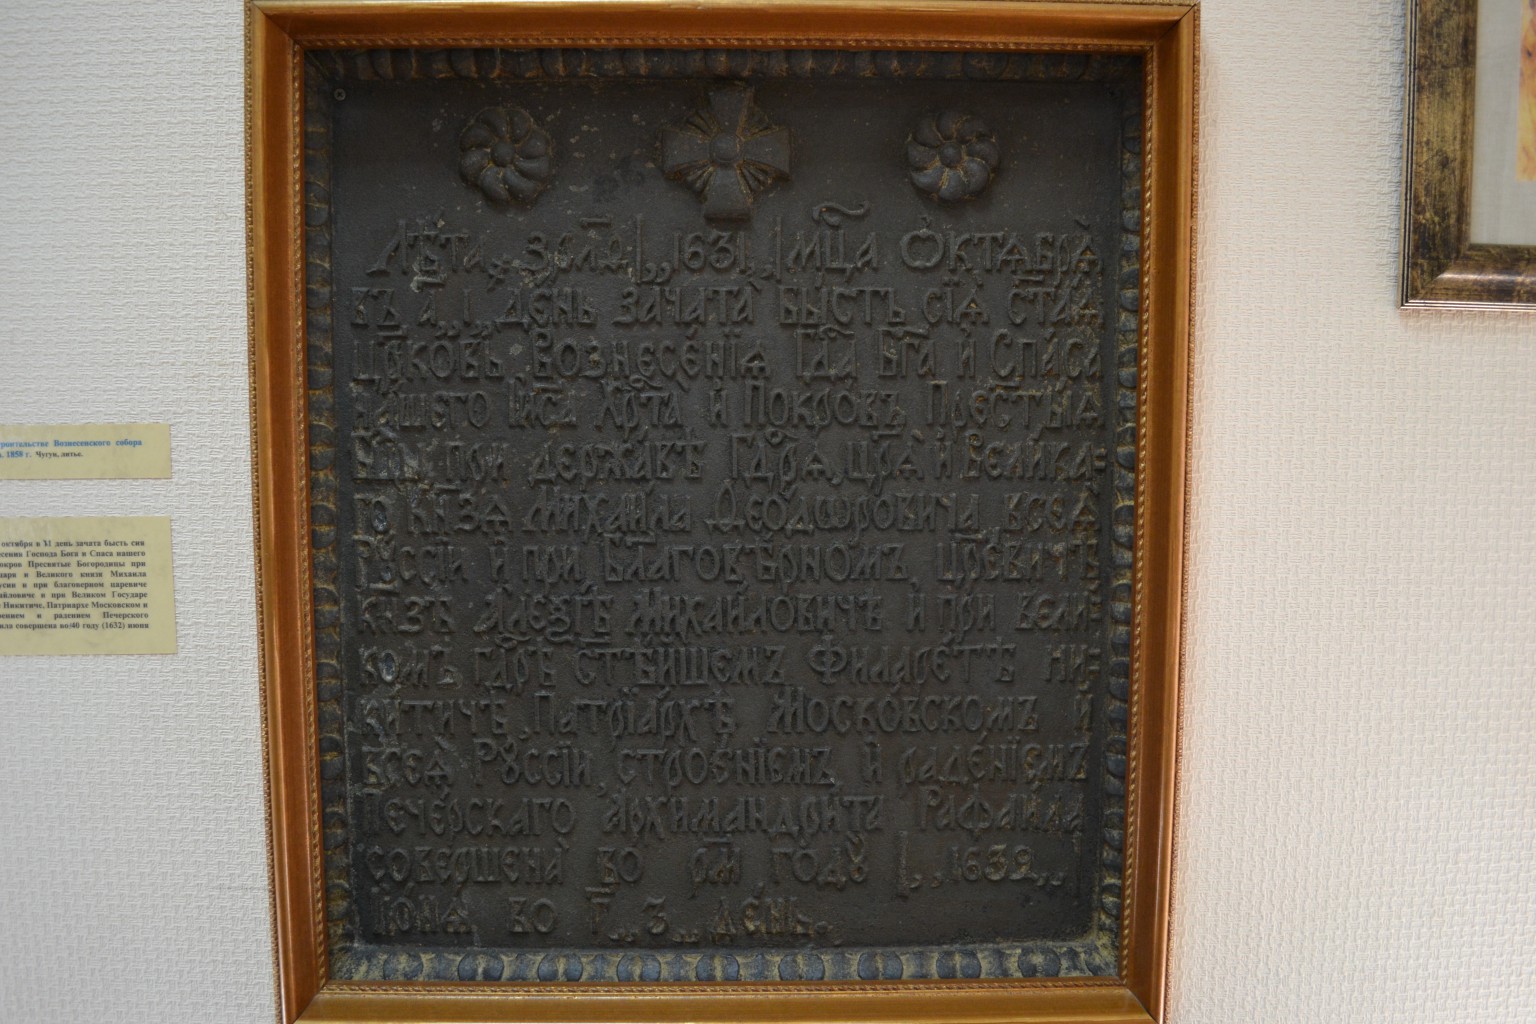 роительстве Вознесенского собора
1858 г. Чугун, литье.
октября в 11 день зачата бысть сия
есения Господа Бога и Спаса нашего
окров Пресвятые Богородицы при
даря и Великого князя Михаила
усии и при благоверном царевиче
айловиче и при Великом Государе
Никитиче, Патриархе Московском и
оением и радением Печерского
ила совершена во/40 году (1632) июня
Лѣта 1631 мц҃а Ѻктѧбрѧ̀
въ а҃ і день зача́та бы́сть сїѧ̀ ст҃аѧ
цр҃ковь Вознесе́нїѧ Гд҃а Бг҃а и҆ Спа́са
на́шегѡ І҆и҃са Хр҃та̀ и҆ Покровъ Прест҃ыѧ
при держа́вѣ Гд҃рѧ, цр҃ѧ̀ и҆ Вели́ка=
го кн҃зѧ Михаи́ла Ѳео́дѡровича, всеѧ̀
Рꙋссі́и и҆ при Благовѣ́рномъ цр҃е́вичѣ
кн҃зѣ Алеѯѣ̀ Миха́йловичѣ и҆ при вели́=
комъ гд҃рѣ ст҃ѣ́йшемъ Филаре́тѣ ни=
китичѣ, Патріа́рхѣ Моско́вскомъ и҆
всеѧ̀ Рꙋссі́и, строе́нїемъ и҆ раде́нїемъ
Пече́рскаго а҆рхимандри́та Рафаи́ла
соверше́на во р҃м го́дꙋ 1632
і҆ю́нѧ во г҃ з де́нь.